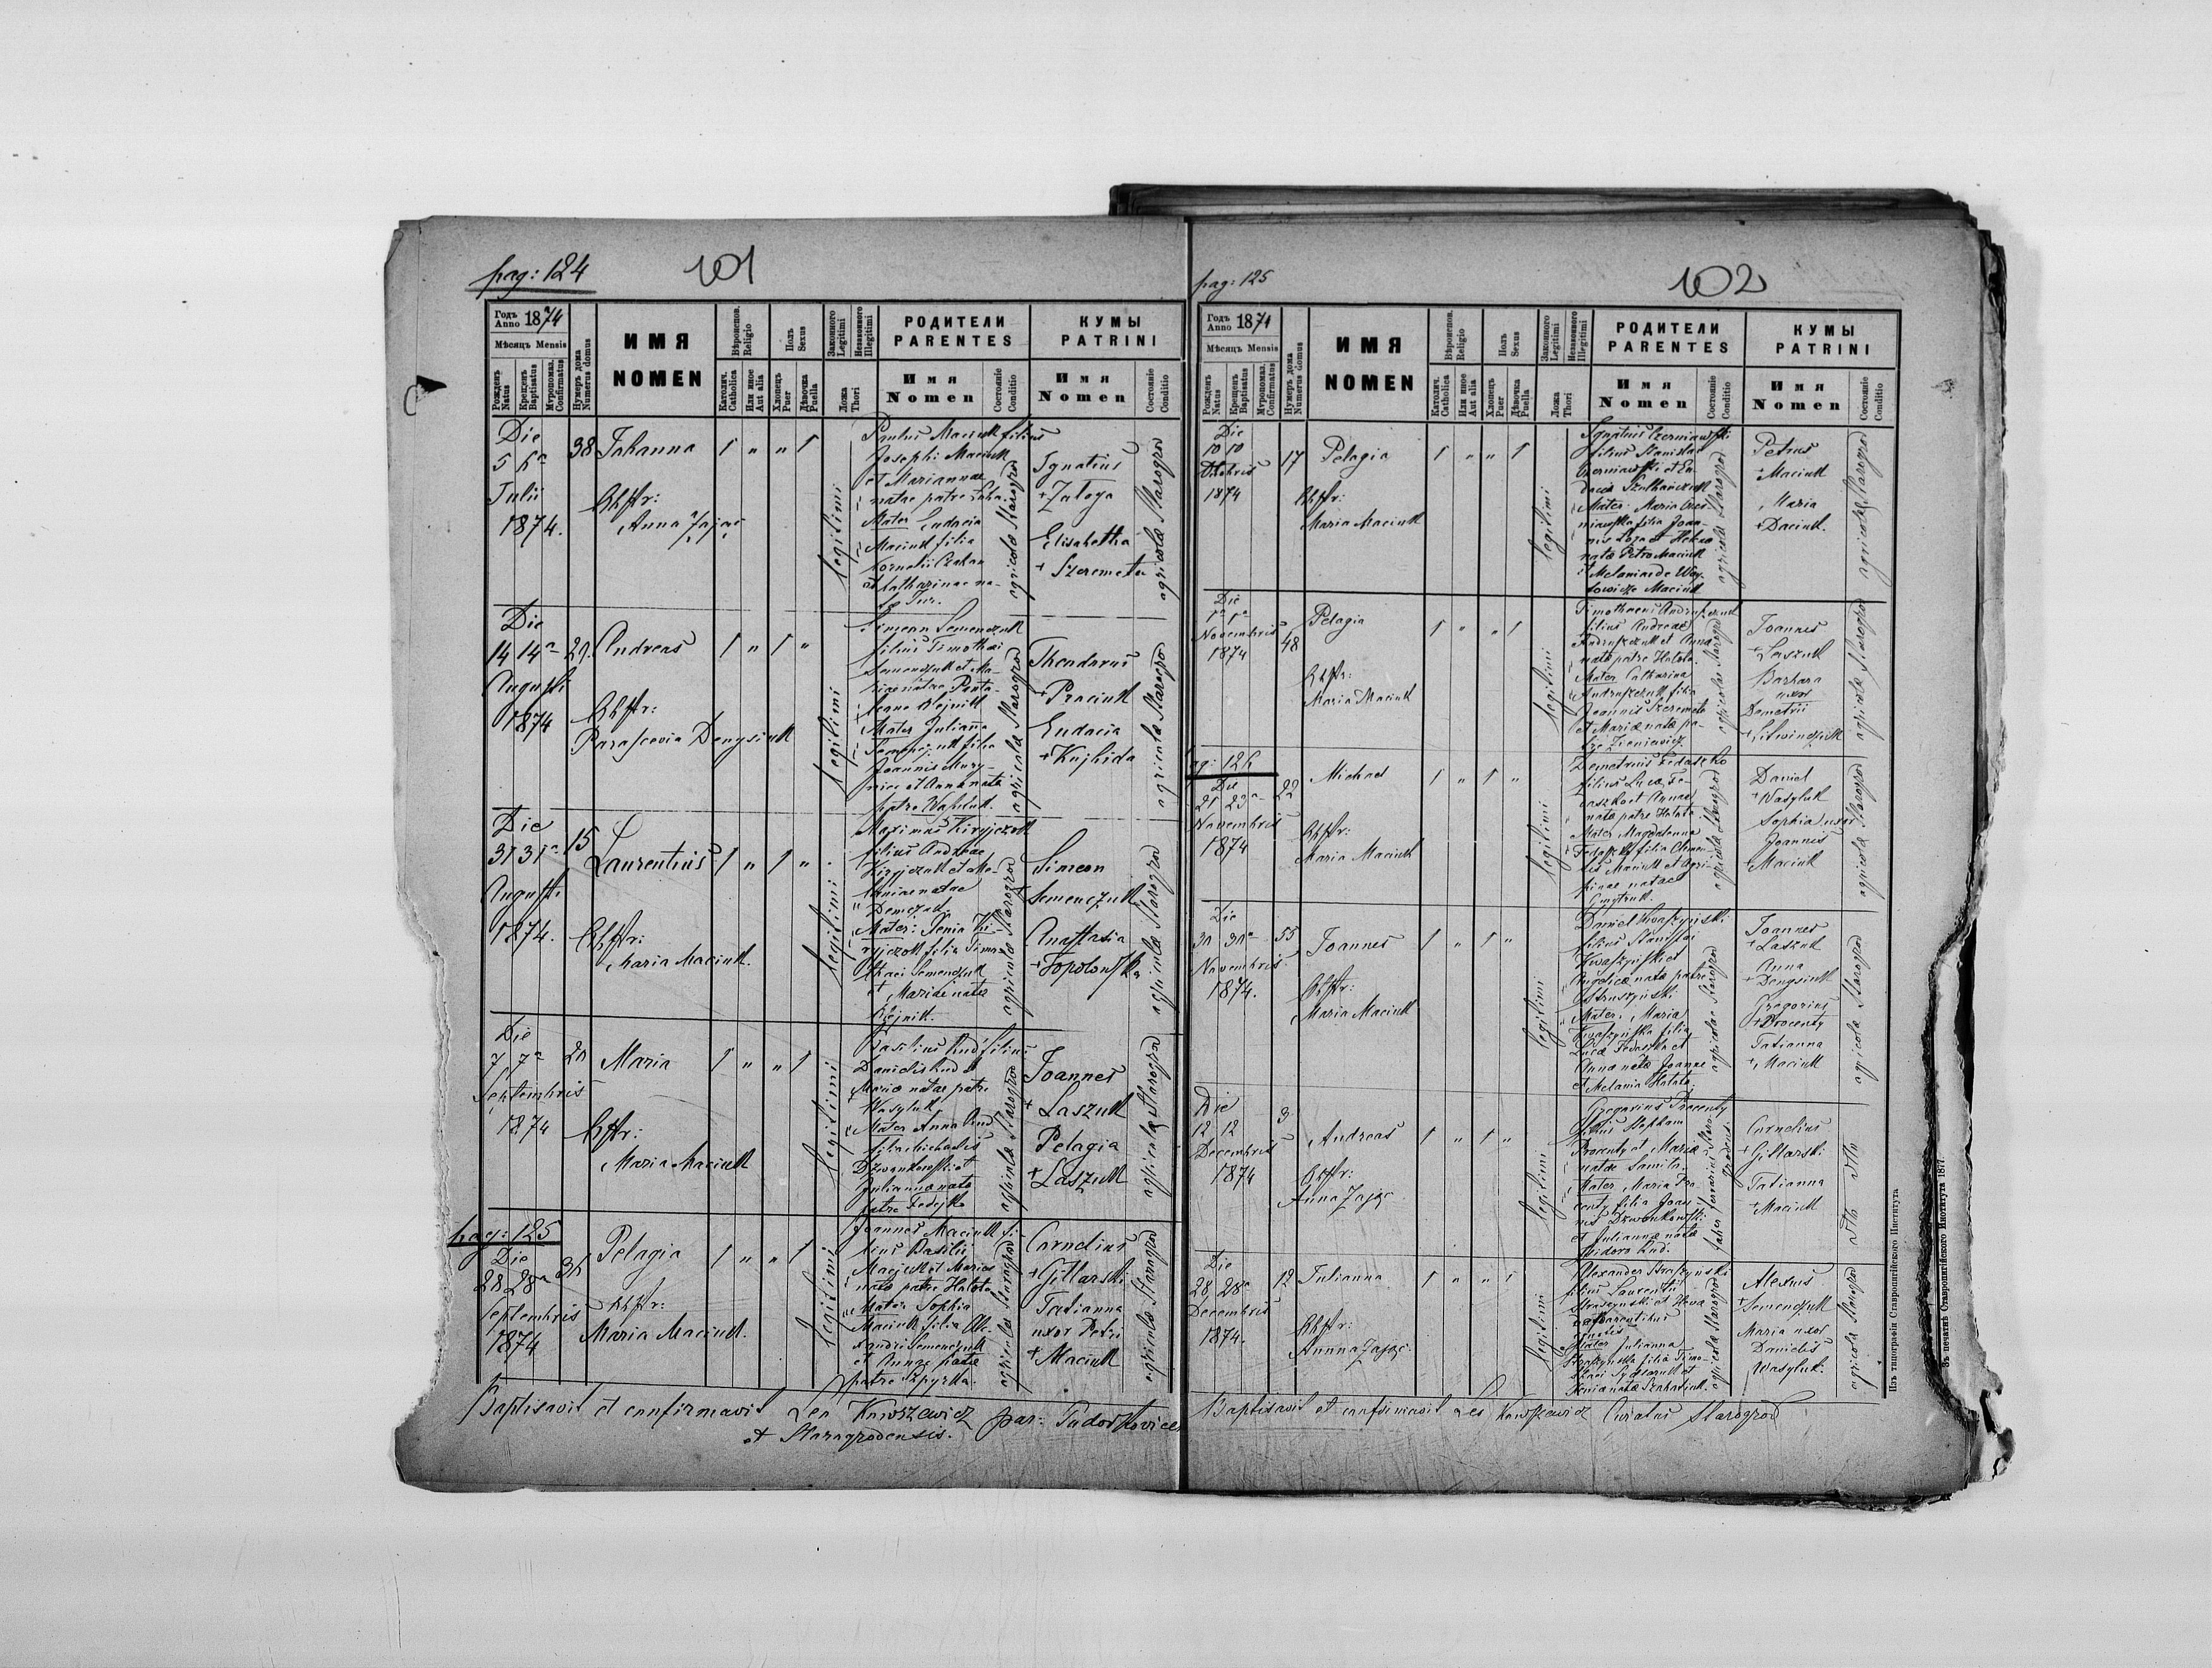 pag: 124
101
Годъ Anno 1874
Мѣсяцъ Mensis
Рожденъ Natus
Крещенъ Baptisatus
Мѵропомаз. Confirmatus
Нумеръ дома Numerus domus
ИМЯ
NOMEN
Вѣроисповѣд. Religio
Католич. Catholica
Или иное Aut alia
Полъ Sexus
Хлопецъ Puer
Дѣвочка Puella
Законного Legitimi
Незаконного Illegitimi
Ложа Thori
РОДИТЕЛИ
PARENTES
Имя
Nomen
Состояніе Conditio
КУМЫ
PATRINI
Имя
Nomen
Состояніе Conditio
Die
5 6a
Julii
1874.
38
Johanna
Obstr:
Anna Zając
1 " " 1
legitimi
Paulus Maciuk filius
Josephi Maciuk
et Mariannae
natae patre
Mater Eudocia
Maciuk filia
Kornelii
et Catharinae na-
agricolae Starogrod
Ignatius
+ Zaloga
Elisabetha
+ Szeremeta
agricola Starogrod
Die
14 14a
Augusti
1874
29.
Andreas
Obstr:
Parascevia Denysiuk
1 " 1 "
legitimi
Simeon Semenczuk
filius Timothaei
Semenczuk et Ma-
riae natae
Mater Julianna
Semenczuk filia
Joannis
et Anna nata
patre Wasyluk.
agricolae Starogrod
Theodorus
+ Praciuk
Eudocia
+ Kujbida
agricola Starogrod
Die
31 31a
Augusti
1874.
15
Laurentius
Obstr:
Maria Maciuk.
1 " 1 "
legitimi
Maximus Kiryjczuk
filius Andreae
Kiryjczuk et Me-
laniae natae
Demczuk.
Mater: Xenia Ki-
ryjczuk filia Timo-
thaei Semenczuk
et Mariae natae
Olejnik.
agricolae Starogrod
Simeon
Semenczuk
Anastasia
+ Topolowska
agricola Starogrod
Die
7 7a
Septembris
1874
20
Maria
Obstr:
Maria Maciuk
1 " " 1
legitimi
Basilius Rud filius
Danielis Rud et
Mariae natae patre
Wasyluk
Mater Anna Rud
filia Michaelis
Dzwonkowski et
Juliannae nata
patre Fedejko
agricolae Starogrod
Joannes
+ Laszuk
Pelagia
+ Laszuk
agricola Starogrod
pag: 125
Die
28 28a
Septembris
1874
36
Pelagia
Obstr:
Maria Maciuk.
1 " " 1
legitimi
Joannes Maciuk fi-
lius Basilii
Maciuk et Maria
nata patre Halota
Mater Sophia
Maciuk filia Ale-
xandri Semenczuk
et Annae natae
patre Spyrka.
agricolae Starogrod
Cornelius
+ Gitlarski
Tatianna
uxor Petri
+ Maciuk
agricola Starogrod
Baptisavit et confirmavit Leo Kowszewicz par: Tudorkovicen
et Starogrodensis.
pag: 125
102
Годъ Anno 1874
Мѣсяцъ Mensis
Рожденъ Natus
Крещенъ Baptisatus
Мѵропомаз. Confirmatus
Нумеръ дома Numerus domus
ИМЯ
NOMEN
Вѣроисповѣд. Religio
Католич. Catholica
Или иное Aut alia
Полъ Sexus
Хлопецъ Puer
Дѣвочка Puella
Законного Legitimi
Незаконного Illegitimi
Ложа Thori
РОДИТЕЛИ
PARENTES
Имя
Nomen
Состояніе Conditio
КУМЫ
PATRINI
Имя
Nomen
Состояніе Conditio
Die
10 10
Octobris
1874
17
Pelagia
Obstr:
Maria Maciuk
1 " " 1
legitimi
Ignatius Czerniawski
filius Stanislai
Czerniawski et Eu-
docia
Mater: Maria Czer-
niawska filia Joan-
nis Loza et Helena
nata Petro Maciuk
et Melania de Way-
towicze Maciuk
agricolae Starogrod
Petrus
+ Maciuk
Maria
+ Daciuk.
agricolae Starogrod
Die
1a 1a
Novembris
1874
48
Pelagia
Obstr:
Maria Maciuk
1 " " 1
legitimi
Timothaeus Andruszczuk
filius Andreae
Andruszczuk et Anna
nata patre Halota.
Mater Catharina
Andruszczuk filia
Joannis Szeremeta
et Mariae nata pa-
tre Zieniewicz.
agricolae Starogrod
Joannes
+ Laszuk
Barbara
uxor
Demetrii
+ Litwinczuk
agricola Starogrod
pag: 126
Die
21 23a
Novembris
1874
22
Michael
Obstr:
Maria Maciuk
1 " 1 "
legitimi
Demetrius Fedaszko
filius Lucae Fe-
daszko et Annae
nata patre Halota.
Mater Magdalenna
Fedaszko filia Clemen-
tis Maciuk et Agri-
pinae natae
Dmytruk.
agricola Starogrod
Daniel
+ Wasyluk
Sophia uxor
Joannis
Maciuk
agricola Starogrod
Die
30 30a
Novembris
1874.
55
Joannes
Obstr:
Maria Maciuk
1 " 1 "
legitimi
Daniel Kwaszynski
filius Stanislai
Kwaszynski et
Angelicae nata patre
Ostruszynski
Mater: Maria
Kwaszynska filia
Lucae Fedaszko et
Anna nata Joanne
et Melania Halota.
agricolae Starogrod
Joannes
+ Laszuk
Anna
+ Denysiuk
Gregorius
+ Procenty
Tatianna
+ Maciuk
agricola Starogrod
Die
12 12
Decembris
1874
3
Andreas
Obstr:
Anna Zając
1 " 1 "
legitimi
Gregorius Procenty
filius Stephani
Procenty et Maria
natae Samita.
Mater, Maria Pro-
centy filia Joan-
nis Dzwonkowski
et Juliannae nata
Isidoro Rud.
faber ferrarius Staro-
grodens.
Cornelius
+ Gitlarski
Tatianna
+ Maciuk
dtto dtto
Die
28 28a
Decembris
1874.
12
Julianna
Obstr:
Annna Zając.
1 " " 1
legitimi
Alexander Straszynski
filius Laurentii
Straszynski et Heva
parentibus
ignotis
Mater Julianna
Straszynska filia Timo-
thaei
Xenia nata
agricolae Starogrod
Alexius
+ Semenczuk
Maria uxor
Danielis
Wasyluk.
agricola Starogrod
Baptisavit et confirmavit Leo Kowszewicz Curatus Starogrod
Изъ типографіи Ставропигійского Института
Зъ печатнѣ Ставропигійского Института 1877.